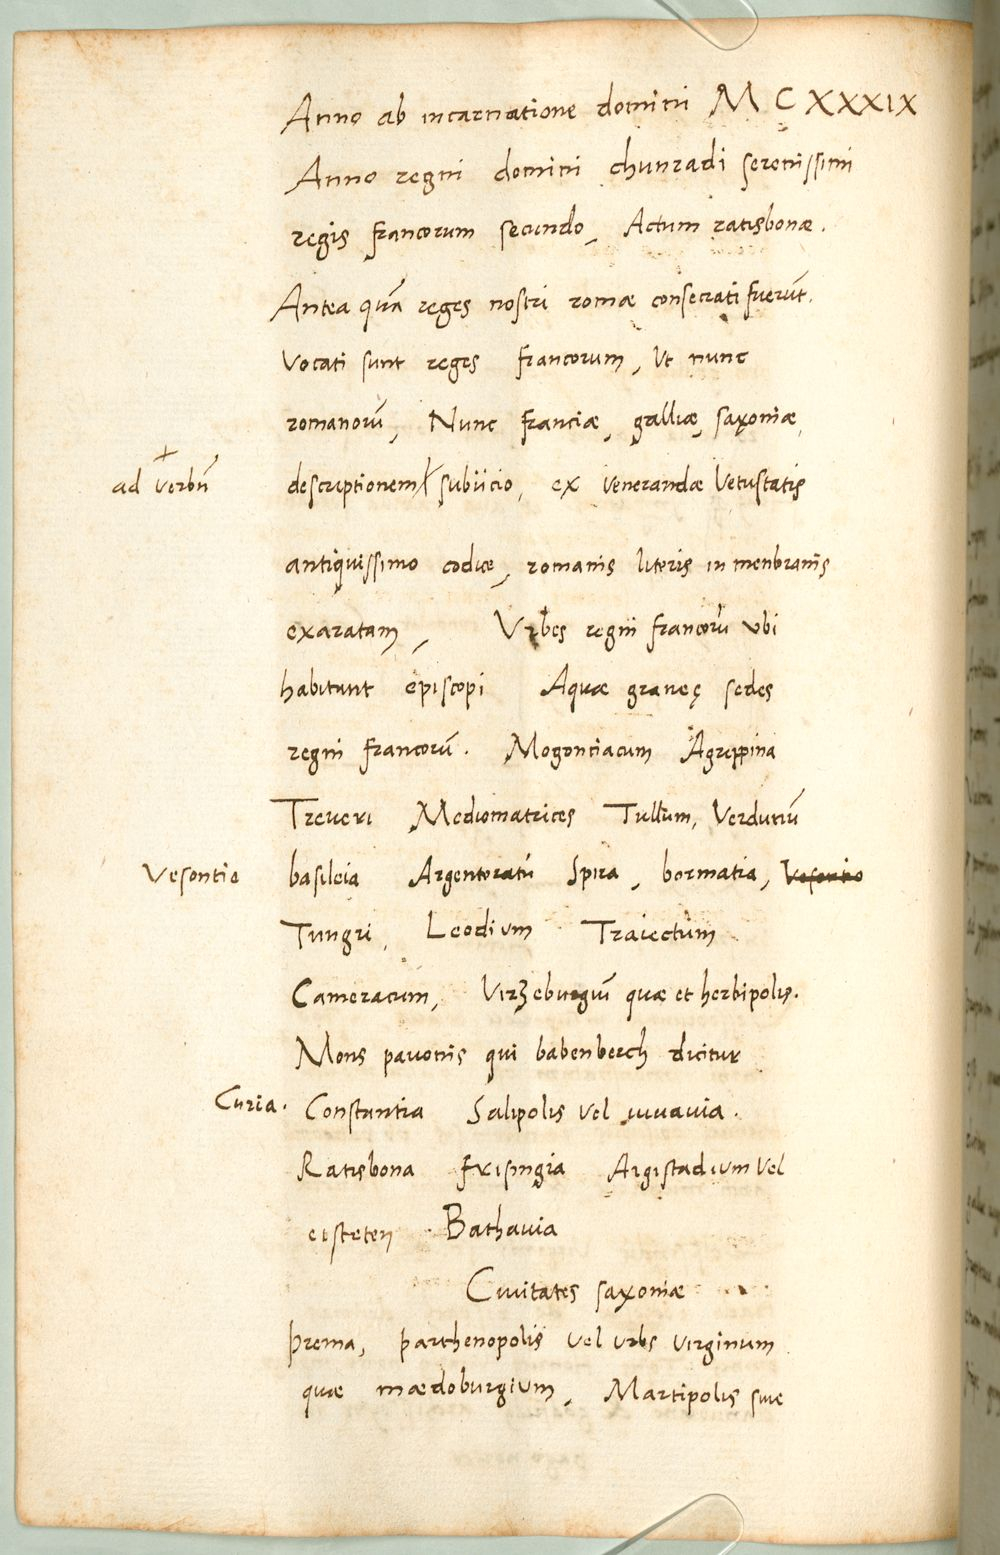 Anno ab incarnatione domini M C XXXIX
Anno regni domini chunradi serenissimi
regis francorum secundo, Actum ratisbonæ.
Antea quā reges nostri romæ consecrati fuerūt.
Vocati sunt reges francorum, Vt nunc
romanorū, Nunc franciæ, galliæ, saxoniæ,
ad verbū
descriptionem subiicio, ex venerandæ Vetustatis
antiquissimo codice, romanis literis in menbranis
exaratam, Vrbes regni francorū vbi
habitunt episcopi Aquæ graneę sedes
regni francorū. Mogontiacum Agrippina
Treveri Mediomatrices Tullum, Verdunū
Vesontio
basileia Argentoratū Spira, bormatia, Vesontio
Tungri, Leodium Traiectum
Cameracum, Virzeburgiū quæ et herbipolis.
Mons pavonis qui babenberch dicitur
Curia. Constantia Salipolis vel iuuauia.
Ratisbona frisingia Argistadium vel
eisteten Bathauia
Ciuitates saxoniæ
prema, parthenopolis vel urbs virginum
quæ mædoburgium, Martipolis siue